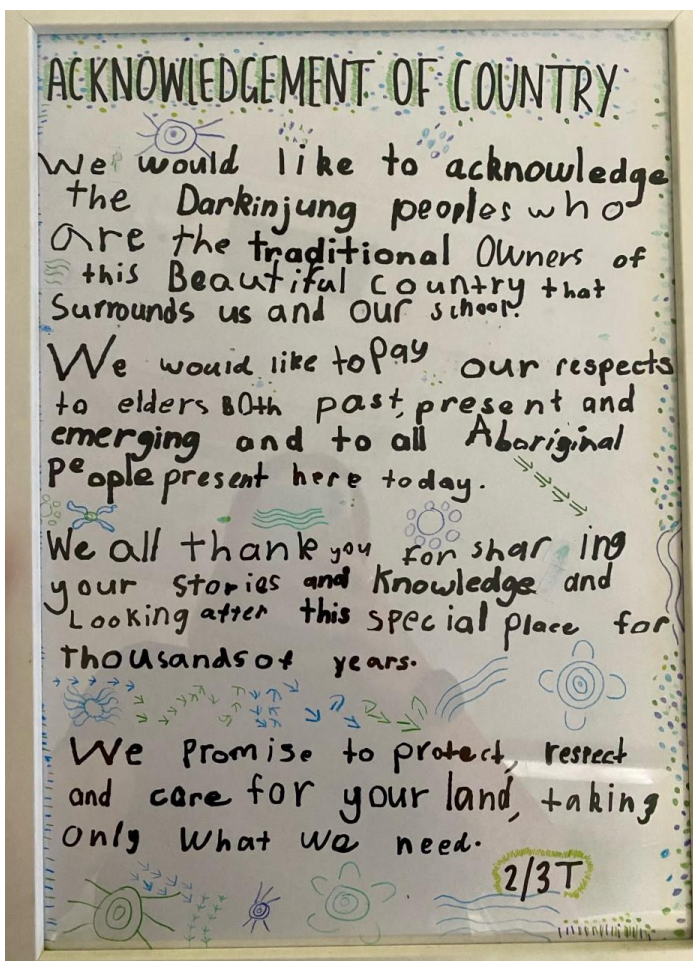 ACKNOWLEDGEMENT OF COUNTRY
We would like to acknowledge
the Darkinjung peoples who
are the traditional Owners of
this Beautiful country that
Surrounds us and our school.
We would like to pay our respects
to elders BOth past, present and
emerging and to all Aboriginal
People present here today.
We all thank you for sharing
your stories and Knowledge and
Looking after this special place for
thousands of years.
We Promise to protect, respect
and care for your land, taking
only what we need.
2/3T